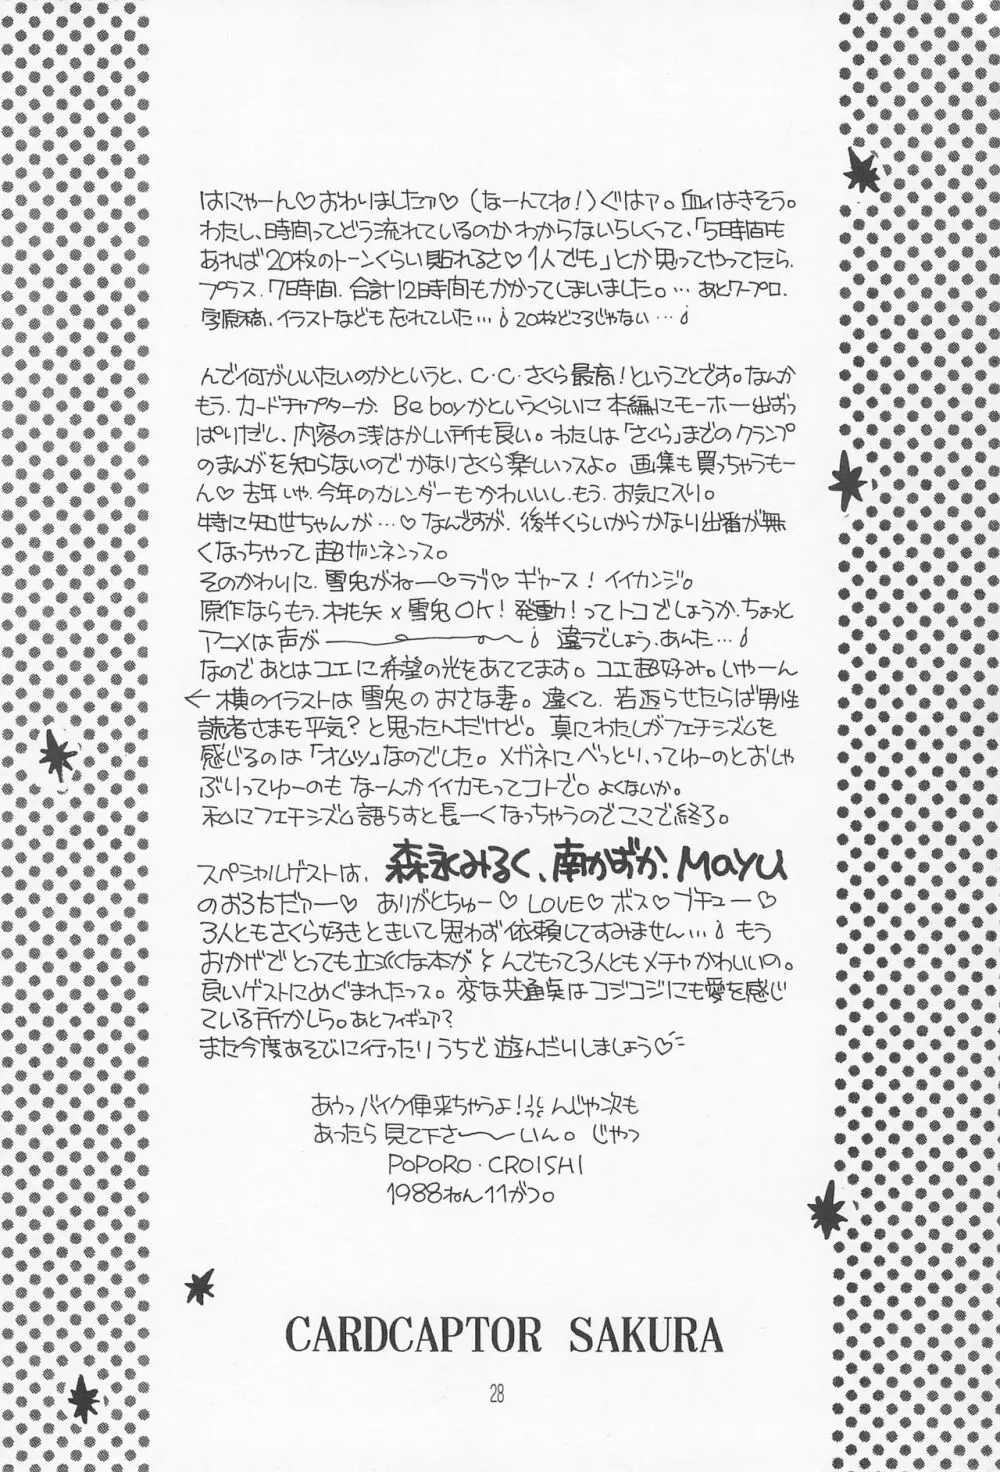 はにゃーん♡おわりましたァ♡(なーんてね!)ぐはァ。血ィはきそう。
わたし、時間ってどう流れているのかわからないらしくって、「5時間も
あれば20枚のトーンくらい貼れるさ♡1人でも」とか思ってやってたら、
プラス、7時間、合計12時間もかかってしまいました。…あとワープロ、
字原稿、イラストなども忘れていた…20枚どころじゃない…
んで何がいいたいのかというと、C・C・さくら最高!ということです。なんか
もう、カードチャプターか、Be boyかというくらいに本編にモーホー出ばっ
ぱりだし、内容の浅はかしい所も良い。わたしは「さくら」までのクランプ
のまんがを知らないのでかなりさくら楽しいっスよ。画集も買っちゃうもー
ん♡去年いや、今年のカレンダーもかわいいし、もう、お気に入り。
特に知世ちゃんが…♡なんですが、後半くらいからかなり出番が無
くなっちゃって超ザンネンっス。
そのかわりに、雪兎がねー♡ラブ♡ギャース!イイカンジ。
原作ならもう、桃矢×雪兎OK!発動!ってトコでしょうか、ちょっと
アニメは声が――違うでしょう、あんた…
なのであとはユエに希望の光をあててます。ユエ超好み。いやーん
←横のイラストは雪兎のおさな妻。違くて、若返らせたらば男性
読者さまも平気?と思ったんだけど。真にわたしがフェチシズムを
感じるのは「オムツ」なのでした。メガネにべっとり、ってゆーのとおしゃ
ぶりってゆーのもなーんかイイカモってコトで。よくないか。
私にフェチシズム語らすと長ーくなっちゃうのでここで終了。
スペシャルゲストは、森永みるく、南かずか、Mayu
のお3方だァー♡ありがとちゅー♡LOVE♡ボス♡ブチュー♡
3人ともさくら好きときいて思わず依頼してすみません…もう
おかげでとっても立派な本が とんでもって3人ともメチャかわいいの。
良いゲストにめぐまれたっス。変な共通点はコジコジにも愛を感じ
ている所かしら。あとフィギュア?
また今度あそびに行ったりうちで遊んだりしましょう♡
あうっバイク便来ちゃうよ!んじゃ次も
あったら見て下さ〜〜いん。じゃっ
POPORO・CROISHI
1988ねん11がつ。
CARDCAPTOR SAKURA
28